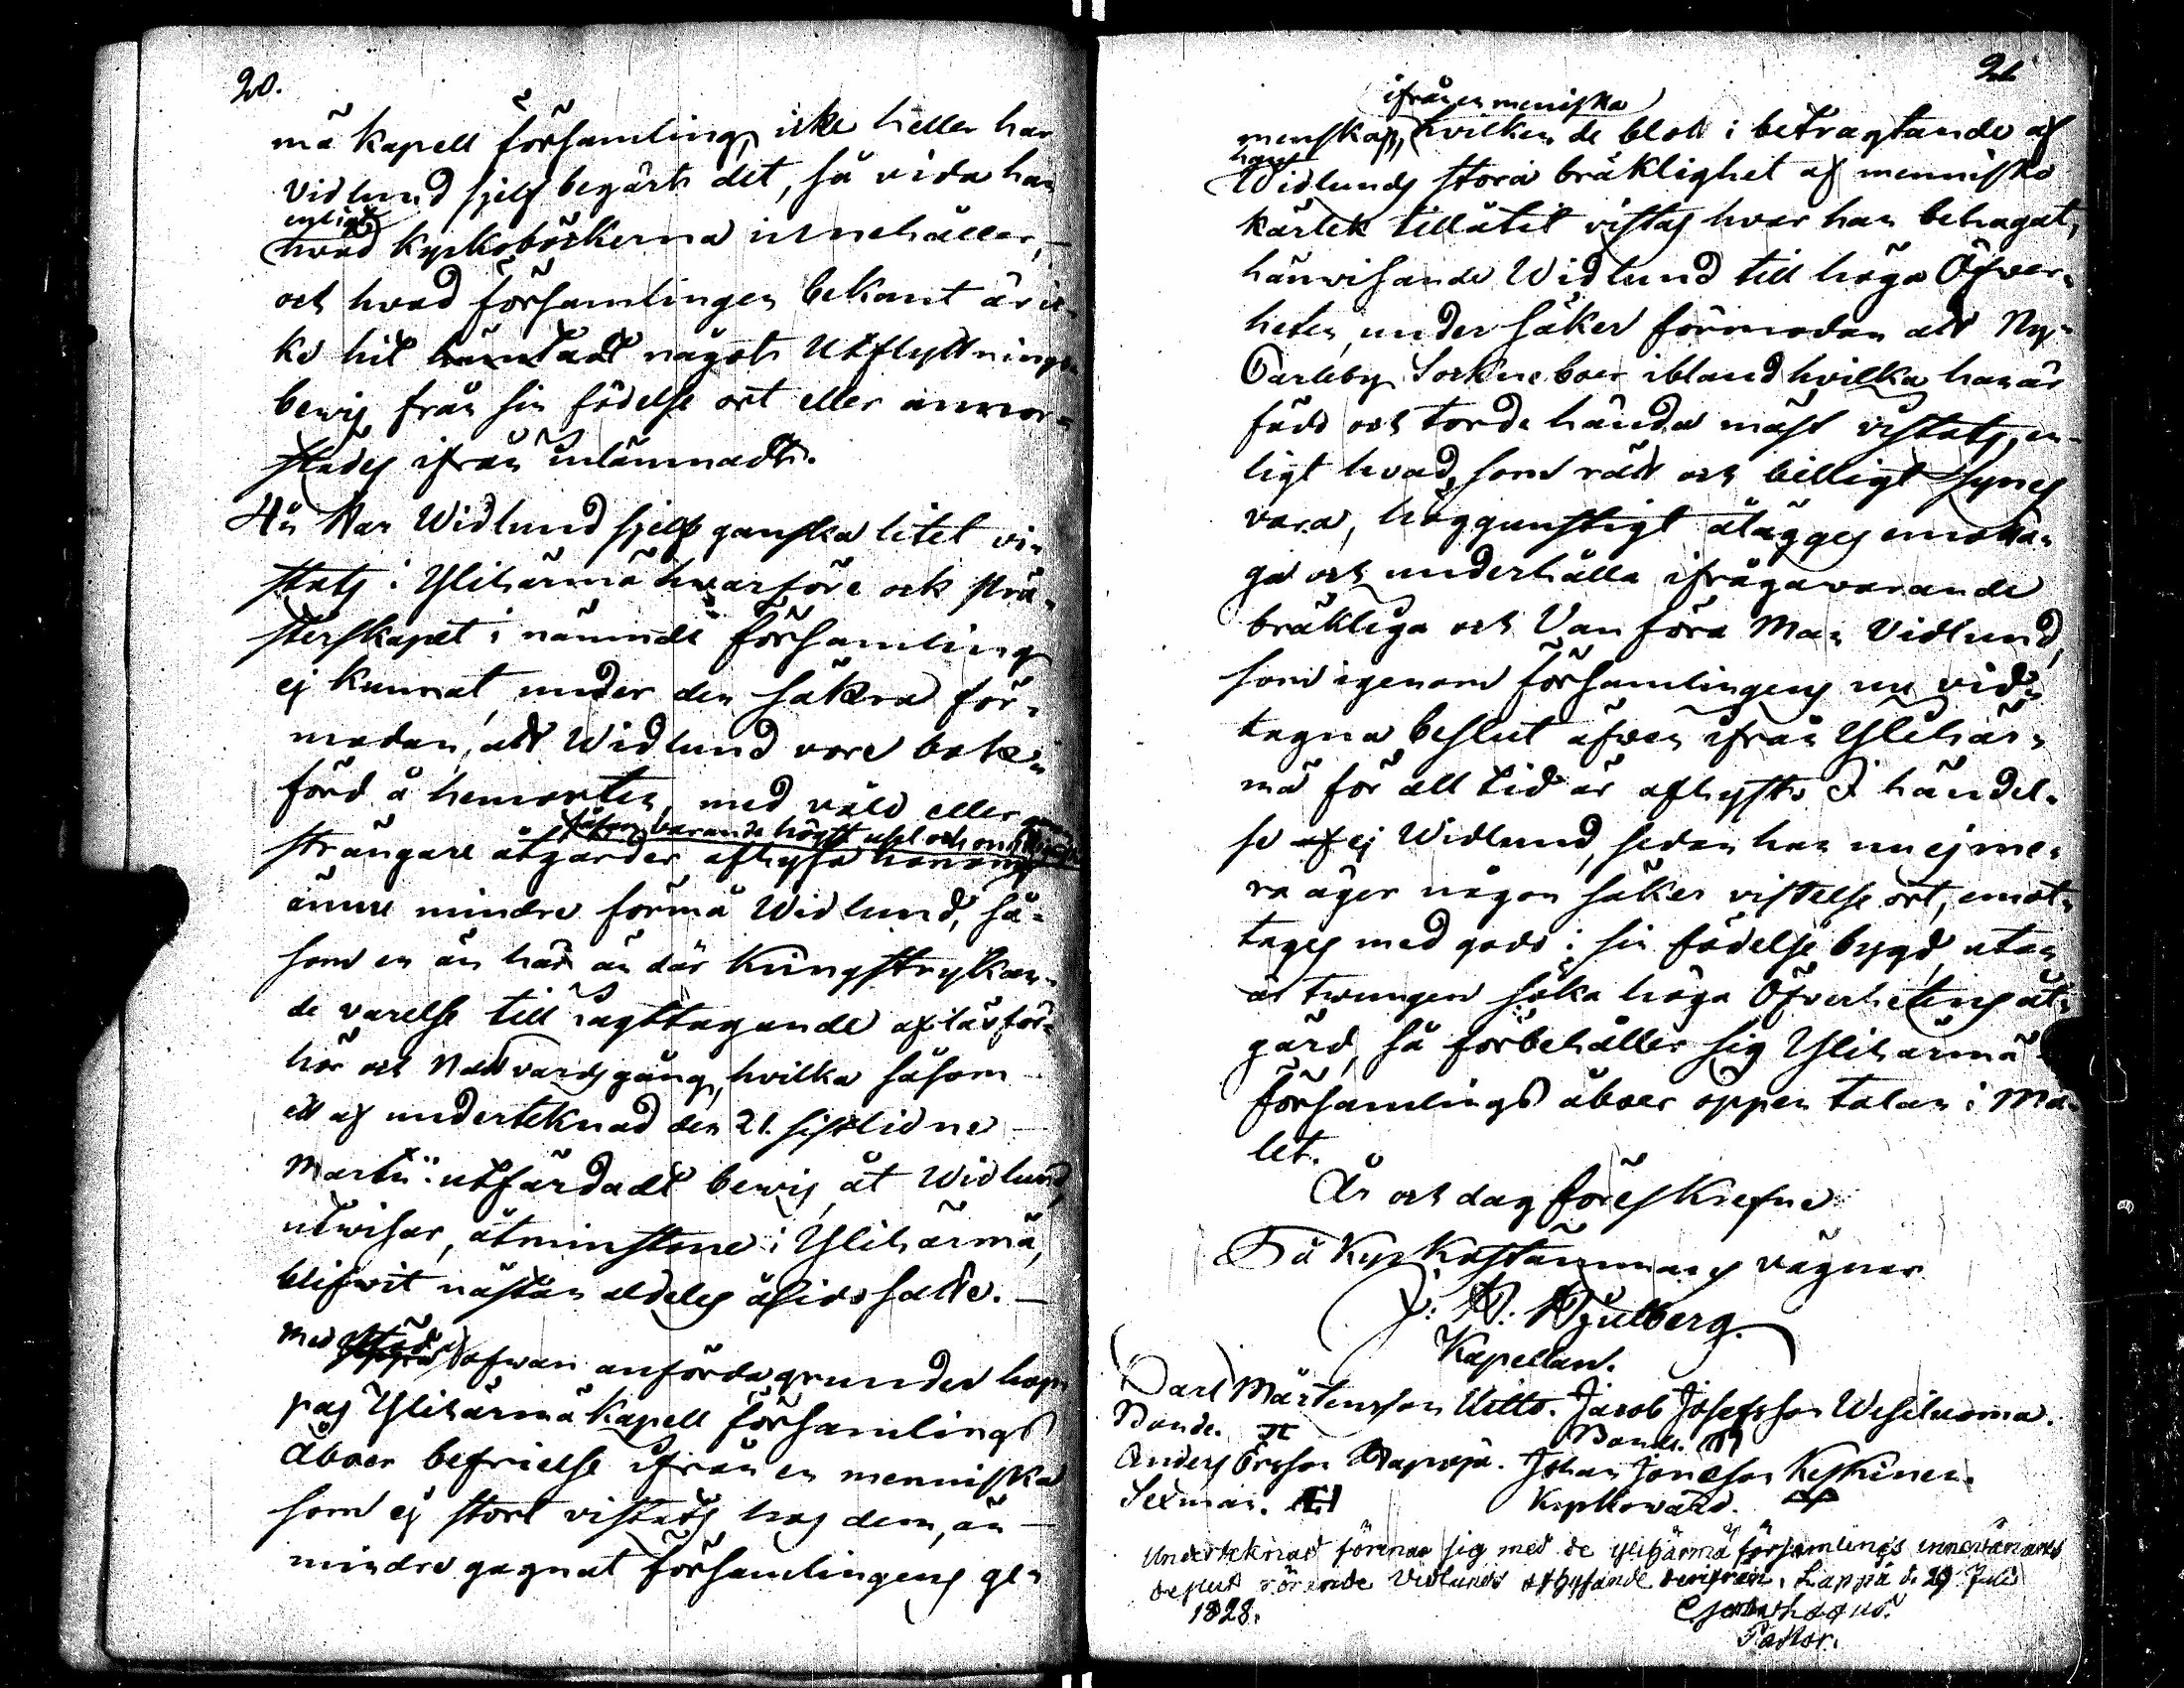 20.
mä Kapell församling, icke heller har
Vidlund sjelf begärt det, så vida han
enligt
hvad Kyrkoböckerna innehåller,
och hvad församlingen bekant är ic-
ke hit något Utflyttnings-
bevis från sin födelse ort eller annor-
städes ifrån inlämnadt.
4:o Har Widlund sjelf ganska litet vi-
stats i Ylihärmä hvarföre ock prä-
sterskapet i nämnde församling
ej kunnat, under den säkra för-
modan, att Widlund vore bok-
förd å hemorten, med våld eller
såsom varande högst usel och
strängare åtgärder afhysa honom
ännu mindre förmå Widlund, så-
som en än här än där Kringstrykan-
de varelse till iagttagande af läsför-
hör och Nattvardsgång, hvilka såsom
ett af undertecknad den 21. sistlidne
Martii utfärdadt bevis åt Widlund,
utwisar, åtminstone i Ylihärmä,
blifwit nästan aldeles åsidosatte.
Med stöd af ofwan anförda grunder hop-
pas Ylihärmä Kapell församlings
åboer befrielse ifrån en menniska
som ej stort vistats hos dem, än
mindre gagnat församlingens ge-
21
ifrån en meniska
menskap, hvilken de blott i betragtande af
hans
Widlunds stora bräklighet af mennisko
kärlek tillåtit vistas hvar han behagat,
hänvisande Widlund till höga Öfwer-
heten, under säker förmodan att Ny-
Carleby Sockneboer ibland hvilka han är
född och torde hända mäst vistats, en-
ligt hvad, som rätt och billigt synes
vara, höggunstigt ålägges emotta-
ga och underhålla ifrågavarande
bräkliga och Vanföra Man Vidlund,
som igenom församlingens nu vid-
tagna beslut äfwen ifrån Ylihär-
mä för all tid är afhyst. I händel-
se ej Widlund, sedan han nu ej me-
ra äger någon säker vistelse ort, emot-
tages med godo i sin födelse bygd, utan
är twungen söka höga Öfverhetens åt-
gärd, så förbehåller sig Ylihärmä
församlings åboer öppen talan i Må-
let.
År och dag föreskrefne
På Kyrkostämmans vägnar
J: N: Hjulberg.
Kapellan.
Carl Mårtensson Uitto. Jacob Josefsson Wesiluoma.
Bonde. Bonde.
Anders Ersson Johan Jonasson Keskinen.
Sexman. Kyrkovärd.
Undertecknad förenar sig med de Ylihärmä församlings innevånares
beslut rörande Vidlunds afhysande derifrån, Lappå d. 29 Julii
1828.
Pastor.